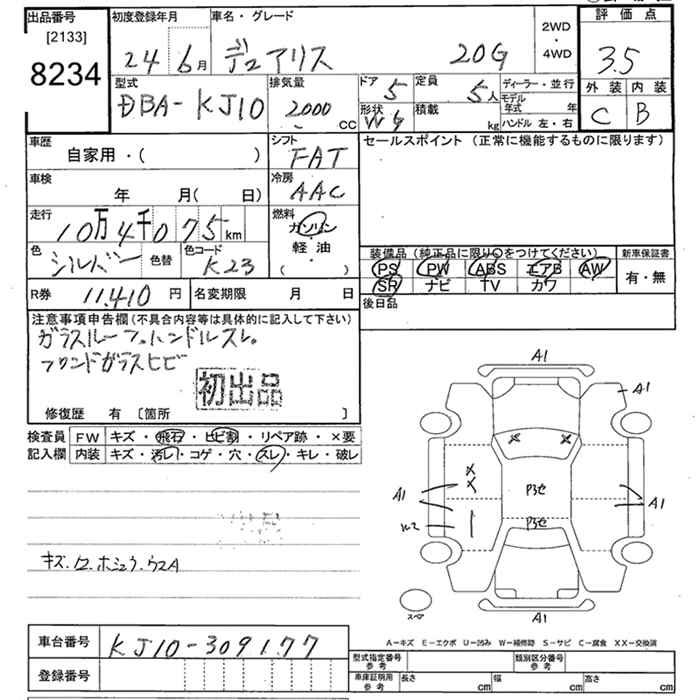 出品番号
[2133]
8234
初度登録年月
24 6月
車名・グレード
デュアリス 20G
2WD
・
4WD
評価点
3.5
外装 内装
C B
型式
DBA-KJ10
排気量
2000
CC
ドア 5
定員 5人
形状
積載 kg
ディーラー・並行
モデル年式 年
ハンドル 左・右
車歴
自家用・( )
シフト
FAT
セールスポイント(正常に機能するものに限ります)
車検
年 月(日)
冷房
AAC
走行
10万4千075km
燃料
ガソリン
・
軽・油
( )
色
シルバー
色替
色コード
K23
装備品(純正品に限り〇をつけてください)
PS PW ABS エアB AW
SR ナビ TV カワ
新車保証書
有・無
R券 11,410 円
名変期限 月 日
後日品
注意事項申告欄(不具合内容等は具体的に記入して下さい)
ガラスルーフ.ハンドルスレ.
フロンドガラスヒビ
初出品
修復歴 有 [箇所 ]
検査員
記入欄
FW キズ・飛石・ヒビ割・リペア跡・×要
内装 キズ・汚レ・コゲ・穴・スレ・キレ・破レ
A1
A1
A1
A1
A1
スペア
A-キズ E-エクボ U-凹み W-補修跡 S-サビ C-腐食 XX-交換済
車台番号 KJ10-309177
登録番号
型式指定番号
参考
類別区分番号
参考
車庫証明用
参考
長さ cm
幅 cm
高さ cm